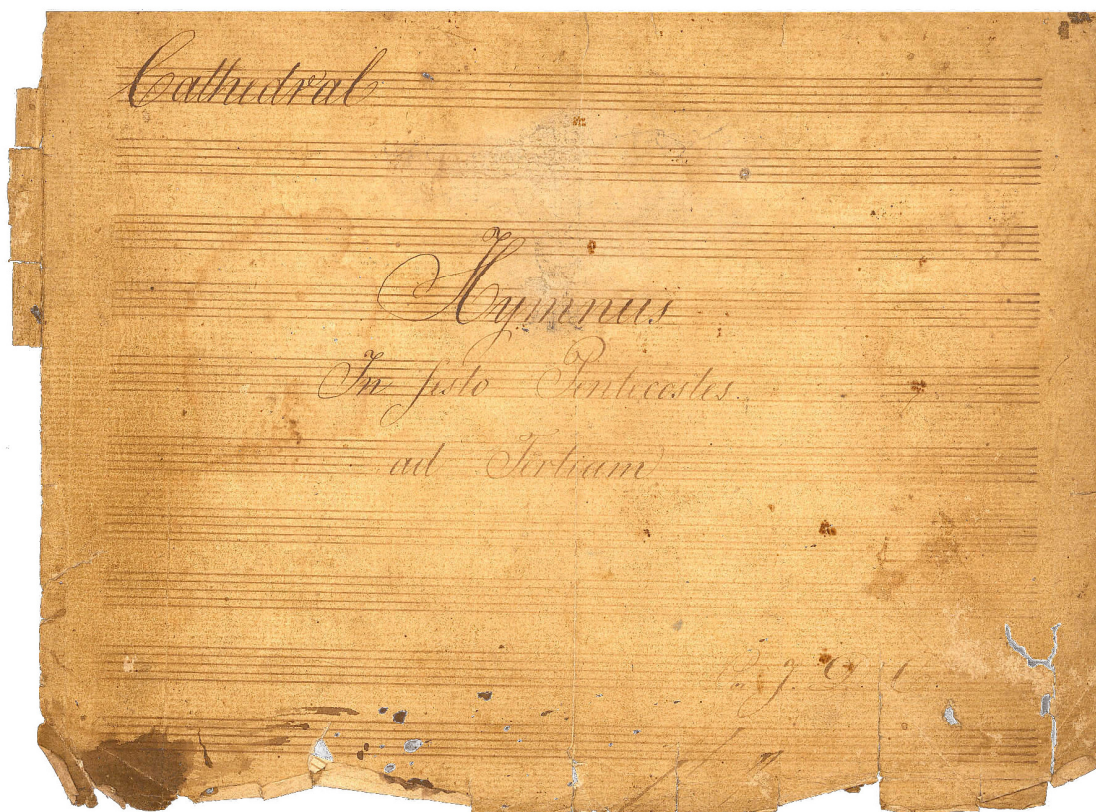 Cathedral
Hymnus
In festo Pentecostes
ad Tertiam